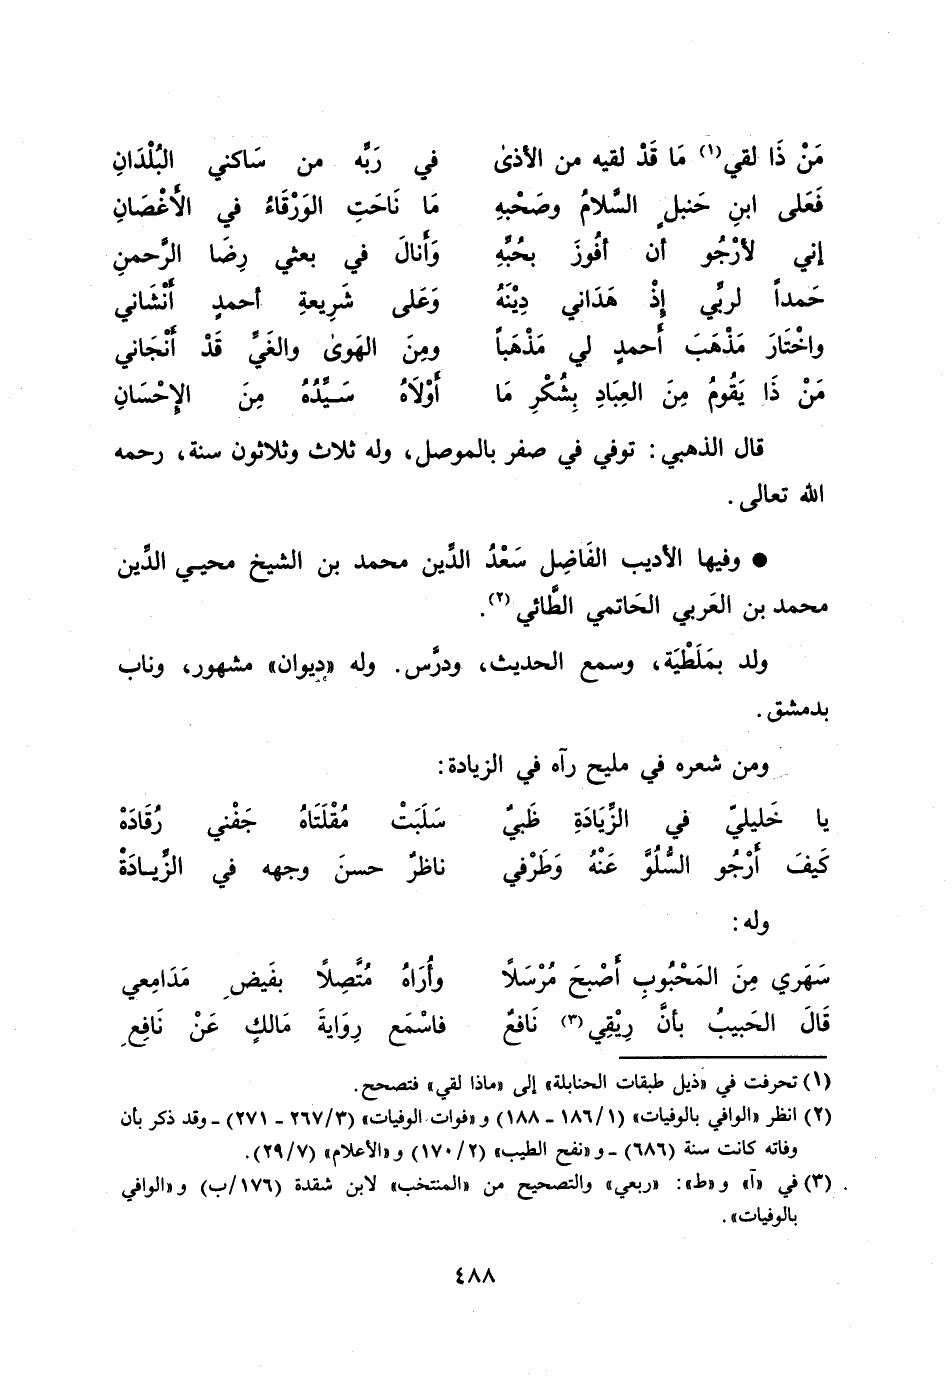 مَنْ ذَا لقي(١) مَا قَدْ لقيه من الأذىٰ في رَبِّه من سَاكني البُلْدَانِ
فَعَلى ابنِ حَنبلٍ السَّلامُ وصَحْبهِ مَا نَاحَتِ الوَرْقَاءُ في الأَغْصَانِ
إني لأَرْجُو أن أفُوزَ بحُبِّهِ وَأَنالَ في بعثي رِضَا الرَّحمنِ
حَمداً لربِّي إذْ هَدَاني دِيْنَهُ وَعَلى شَرِيعةِ أحمدٍ أَنْشَاني
واخْتَارَ مَذْهَبَ أَحمدٍ لي مَذْهَباً ومِنَ الهَوىٰ والغَيِّ قَدْ أَنْجَاني
مَنْ ذَا يَقُومُ مِنَ العِبَادِ بِشُكْرِ مَا أَوْلَاهُ سَيِّدُهُ مِنَ الإِحْسَانِ
قال الذهبي: توفي في صفر بالموصل، وله ثلاث وثلاثون سنة، رحمه
الله تعالى.
● وفيها الأديب الفَاضِل سَعْدُ الدِّين محمد بن الشيخ محيـي الدِّين
محمد بن العَربي الحَاتمي الطَّائي(٢).
ولد بمَلَطْيَة، وسمع الحديث، ودرَّس. وله «ديوان» مشهور، وناب
بدمشق.
ومن شعره في مليح رآه في الزيادة:
يا خَليليّ في الزِّيَادَةِ ظَبيٌ سَلَبَتْ مُقْلَتَاهُ جَفْني رُقَادَهْ
كَيفَ أَرْجُو السُّلُوَّ عَنْهُ وَطَرْفي ناظرٌ حسنَ وجهه في الزِّيـادَهْ
وله:
سَهَري مِنَ المَحْبُوبِ أَصْبحَ مُرْسَلًا وأُرَاهُ مُتَّصِلًا بفَيضِ مَدَامِعي
قَالَ الحَبيبُ بأنَّ رِيْقِي(٣) نَافعٌ فاسْمَع رِوَايةَ مَالكٍ عَنْ نَافِعِ
(١) تحرفت في «ذيل طبقات الحنابلة» إلى «ماذا لقي» فتصحح.
(٢) انظر «الوافي بالوفيات» (١/١٨٦ ـ ١٨٨) و«فوات الوفيات» (٣/٢٦٧ ـ ٢٧١) ـ وقد ذكر بأن
وفاته كانت سنة (٦٨٦) ـ و«نفح الطيب» (٢/١٧٠) و«الأعلام» (٧/٢٩).
(٣) في «آ» و«ط»: «ربعي» والتصحيح من «المنتخب» لابن شقدة (١٧٦/ب) و«الوافي
بالوفيات».
٤٨٨